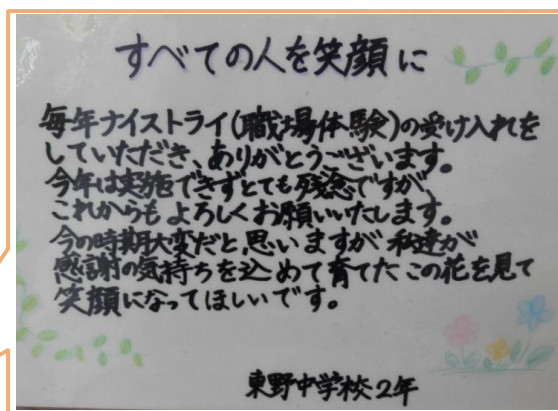 すべての人を笑顔に
毎年ナイストライ(職場体験)の受け入れを
していただき、ありがとうございます。
今年は実施できずとても残念ですが、
これからもよろしくお願いいたします。
今の時期大変だと思いますが私達が
感謝の気持ちを込めて育てたこの花を見て
笑顔になってほしいです。
東野中学校2年